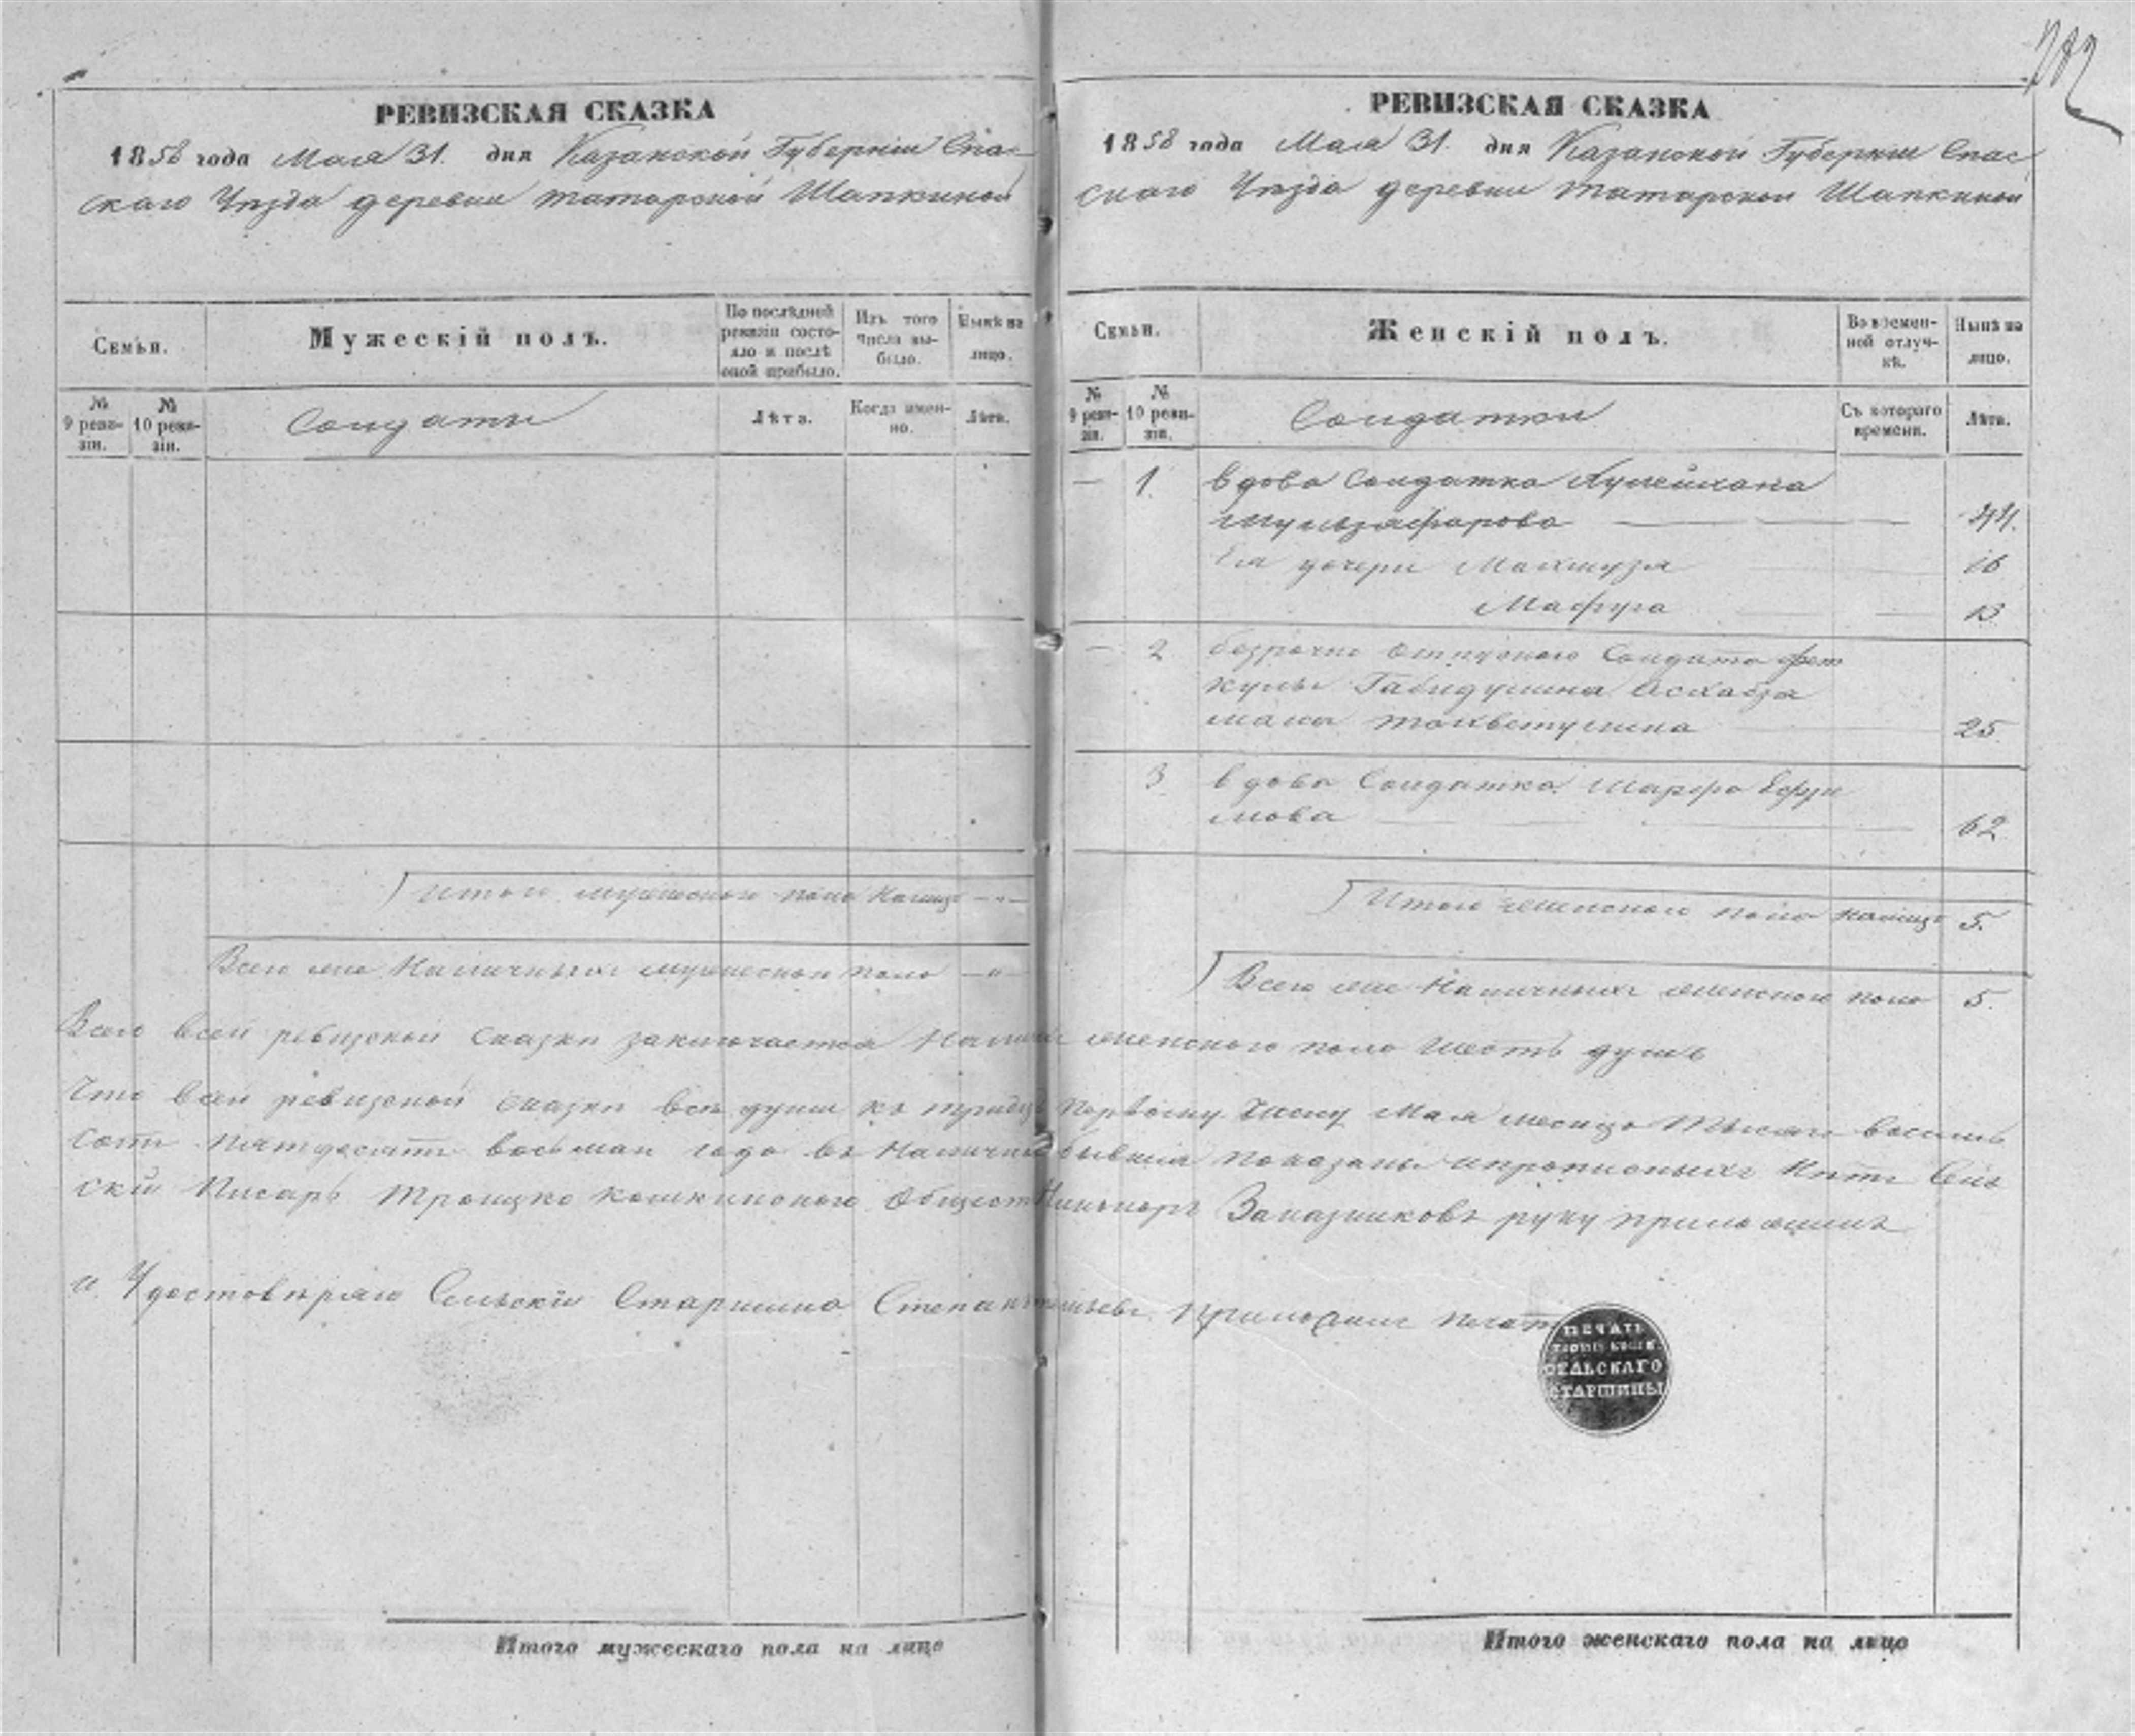 РЕВИЗСКАЯ СКАЗКА
1858 года Мая 31. дня Казанской Губернии Спас-
скаго Уѣзда деревни татарской Шапкиной
Семьи.
Мужескій полъ.
По послѣдней ревизіи состояло и послѣ оной прибыло.
Изъ того числа выбыло.
Нынѣ на лицо.
№ 9 ревизіи.
№ 10 ревизіи.
Солдаты
Лѣта.
Когда именно.
Лѣта.
Итого мужескаго пола налицо
Всего же Наличныхъ мужескаго пола
РЕВИЗСКАЯ СКАЗКА
1858 года Мая 31. дня Казанской Губернии Спас
скаго Уѣзда деревни татарской Шапкиной
Семьи.
Женскій полъ.
Во временной отлучкѣ.
Нынѣ на лицо.
№ 9 ревизіи.
№ 10 ревизіи.
Солдатки
Съ котораго времени.
Лѣта.
— 1. вдова Солдатка
мульзяфарова 44.
Ея дочери Махмузя 16
Мафуга 13
— 2 Солдата фет
кулы Габидулина
25
3 вдова Солдатка марфа Ефи
мова 62
Итого женскаго пола налицо 5.
Всего же Наличныхъ женскаго пола 5.
Всего всей ревизской сказки заключается женскаго пола шесть душъ
Что всей ревизской сказки всѣ души къ первому числу Мая месяца
сотъ пятдесятъ восьмаго года въ бывшия показаны и прописныхъ нѣтъ Сель
ский Писарь Троицко кошкинского Никаноръ Заказчиковъ руку приложилъ
и Удостовѣряю Сельский Старшина Степанъ приложилъ печать
ПЕЧАТЬ
СЕЛЬСКАГО
СТАРШИНЫ
Итого мужескаго пола на лицо
Итого женскаго пола на лицо